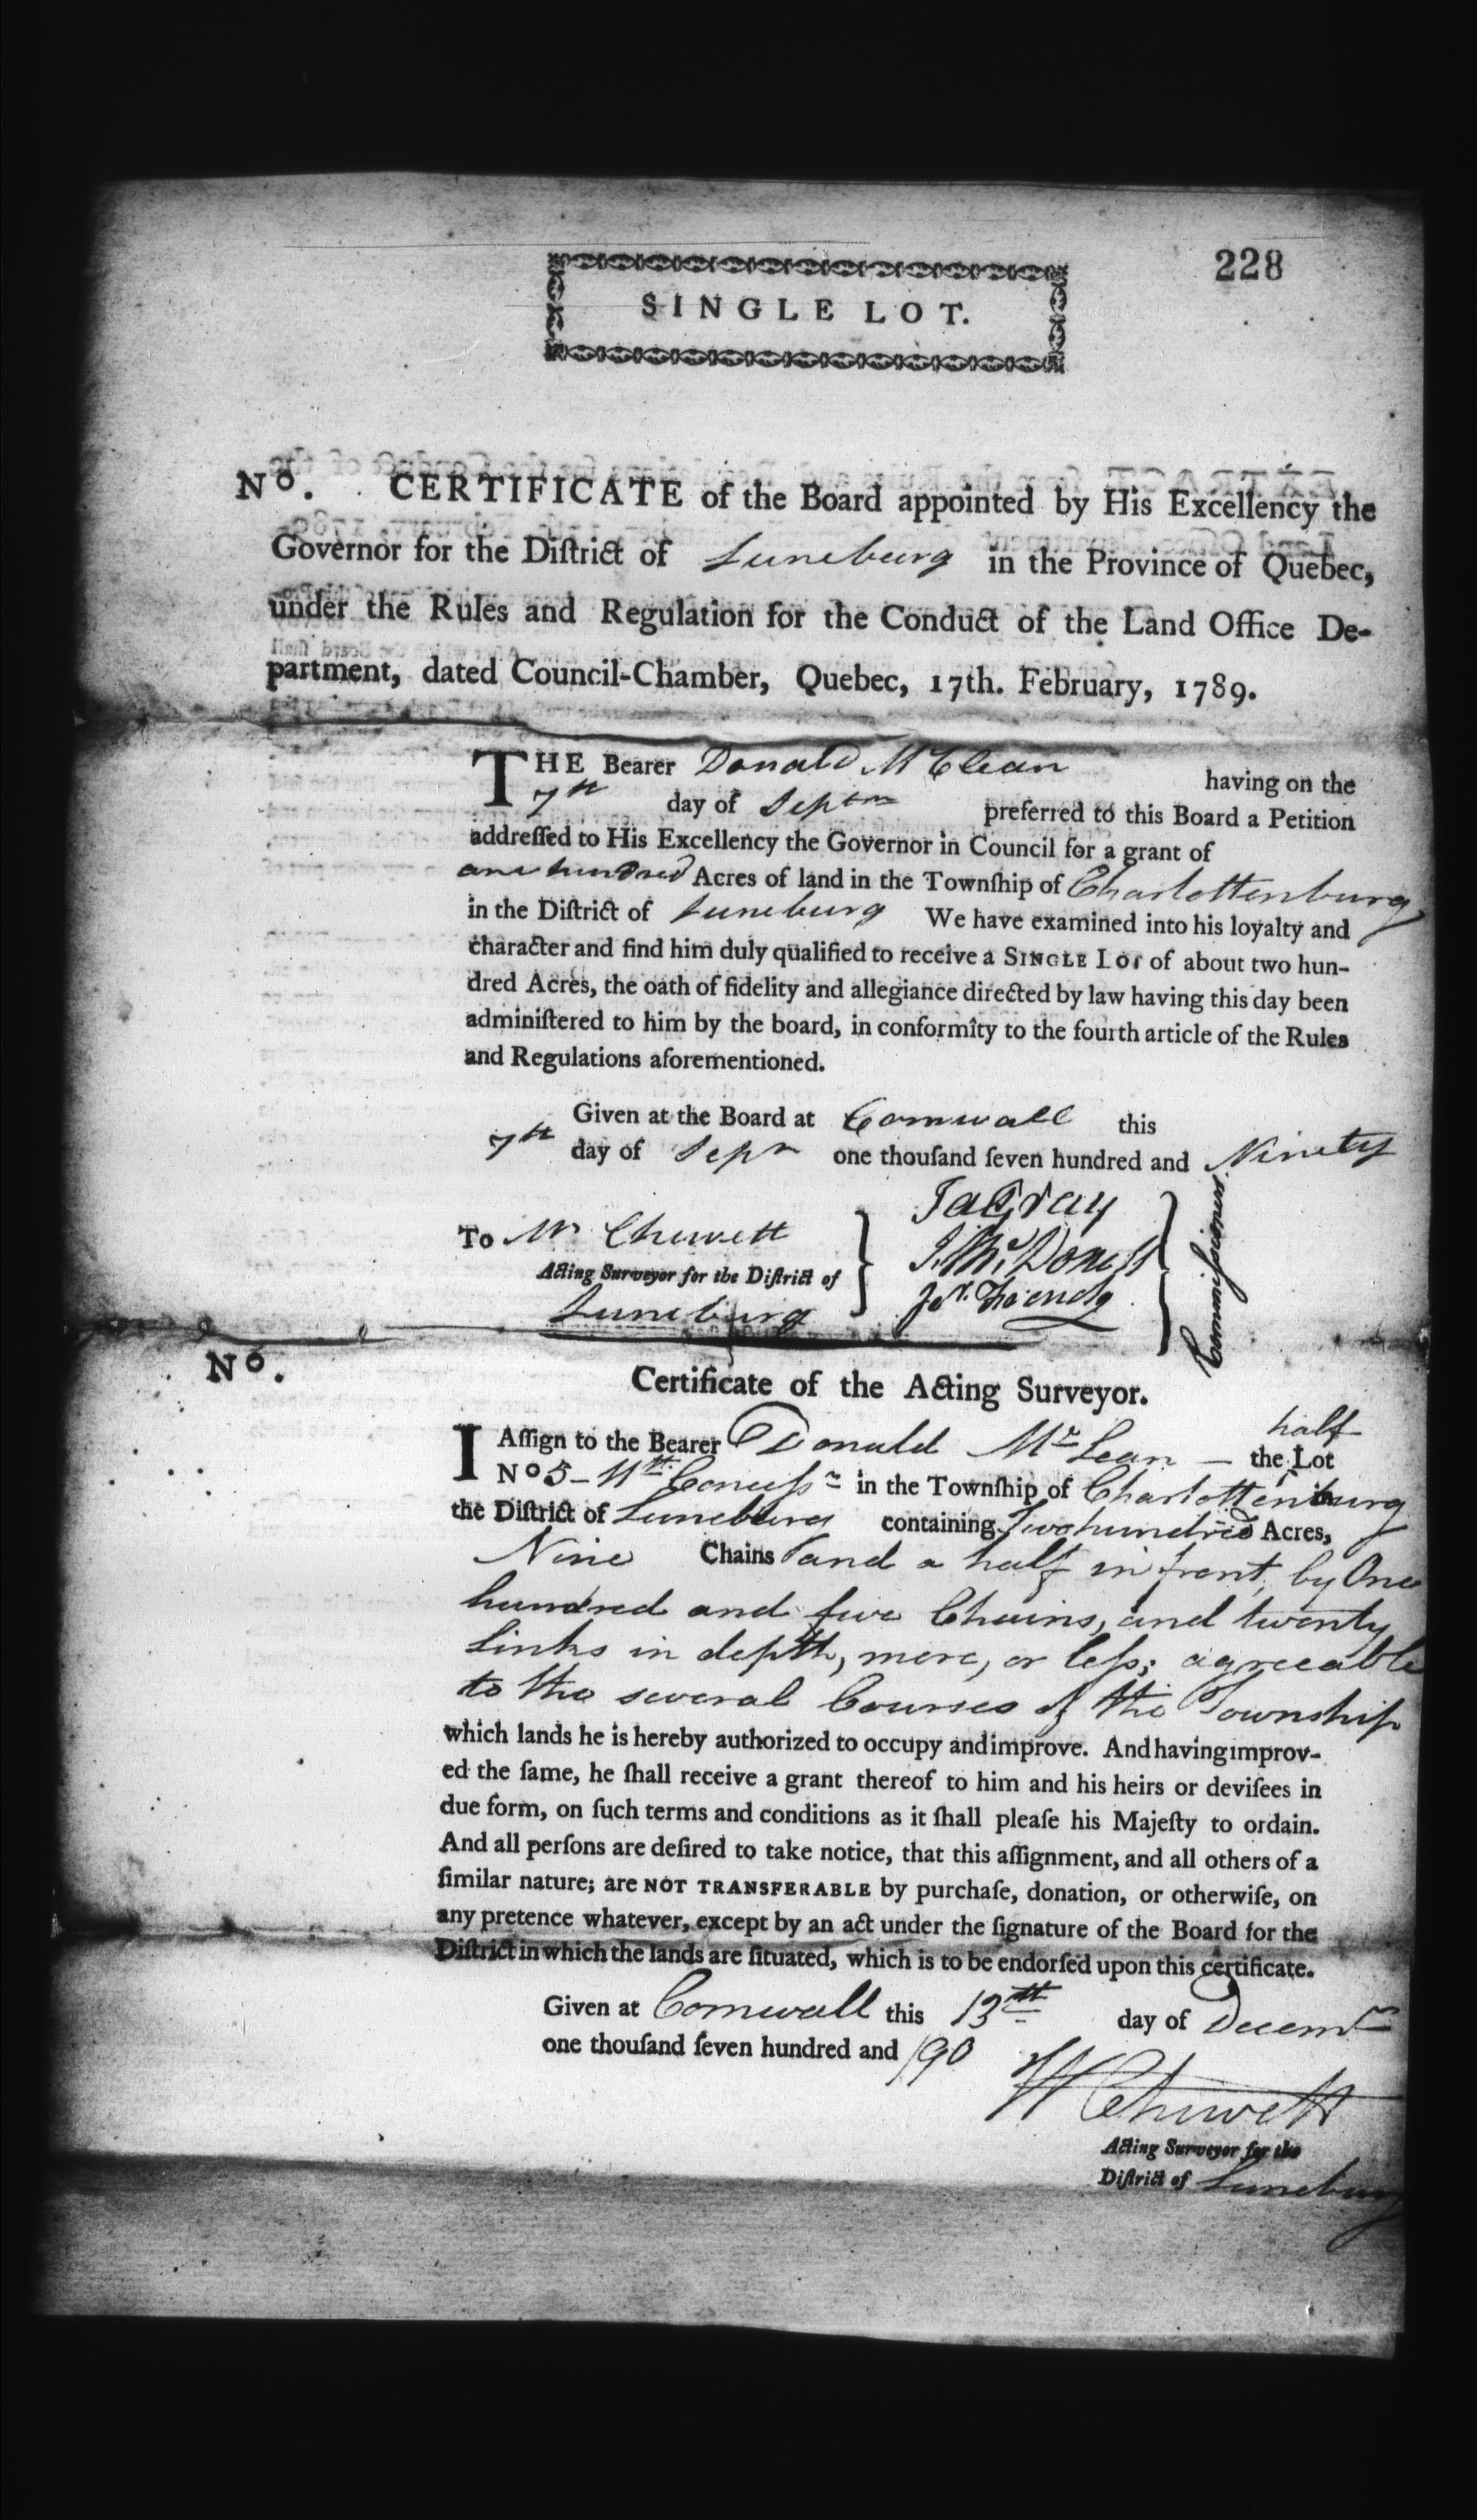 228
SINGLE LOT.
Nº. CERTIFICATE of the Board appointed by His Excellency the
Governor for the Diſtrict of Luneburg in the Province of Quebec,
under the Rules and Regulation for the Conduct of the Land Office De-
partment, dated Council-Chamber, Quebec, 17th. February, 1789.
THE Bearer Donald McClean having on the
7th day of Septm preferred to this Board a Petition
addreſſed to His Excellency the Governor in Council for a grant of
one hundred Acres of land in the Townſhip of Charlottenburg
in the Diſtrict of Luneburg We have examined into his loyalty and
character and find him duly qualified to receive a SINGLE LOT of about two hun-
dred Acres, the oath of fidelity and allegiance directed by law having this day been
adminiſtered to him by the board, in conformîty to the fourth article of the Rules
and Regulations aforementioned.
Given at the Board at Cornwall this
7th day of Sepr one thouſand ſeven hundred and Ninety
To Mr Chewett
Acting Surveyor for the Diſtrict of
Luneburg
Jas Gray
J. McDonell
Commiſsioners
Nº.
Certificate of the Acting Surveyor.
half
I Aſſign to the Bearer Donald McLean — the Lot
Nº 5 – 4th Conceſsn in the Townſhip of Charlottenburg in
the Diſtrict of Luneburg containing Two hundred Acres,
Nine Chains and a half in front, by One
hundred and five Chains, and twenty
Links in depth, more, or leſs; agreeable
to the several Courses of the Township
which lands he is hereby authorized to occupy and improve. And having improv-
ed the ſame, he ſhall receive a grant thereof to him and his heirs or deviſees in
due form, on ſuch terms and conditions as it ſhall pleaſe his Majeſty to ordain.
And all perſons are deſired to take notice, that this aſſignment, and all others of a
ſimilar nature; are NOT TRANSFERABLE by purchaſe, donation, or otherwiſe, on
any pretence whatever, except by an act under the ſignature of the Board for the
Diſtrict in which the lands are ſituated, which is to be endorſed upon this certificate.
Given at Cornwall this 13th day of Decemr
one thouſand ſeven hundred and /90
W Chewett
Acting Surveyor for the
Diſtrict of Luneburg